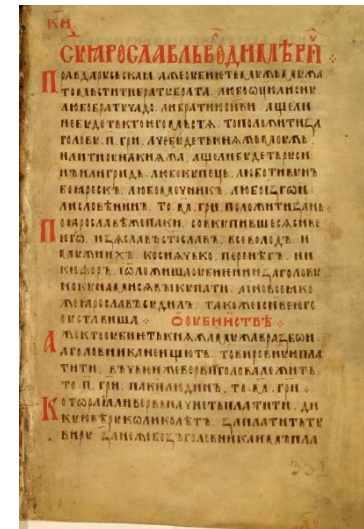 СꙊ ꙖРОСЛАВЛЬ ВОДИМѢРИ
Правда роусьскаꙗ аже оубиеть моужь моужа
то мьстити брату брата любо оцю ли сну
любо брату чадо ли братню снви аще ли
не будеть кто его мьстѧ то положити за
голову п гри аче будеть кнѧжь моужь
или тиоуна кнѧжа аще ли будеть руси
нъ или гридь любо купець любо тивунъ
боꙗрескъ любо мечникъ любо изгои
ли словѣнинъ то м гри положити за нь
По ꙗрославѣ же паки совкупившесѧ снве
его изѧславъ стославъ всеволодъ и
мужи ихъ коснѧчько перенѣгъ ни
кифоръ и ѿложиша оубиение за голову
но кунами сѧ выкупати а ино все ꙗко
же ꙗрославъ судилъ такоже и снве его
оуставиша О оубииствѣ
Аже кто оубиеть кнѧжа мужа в разбои
а головника не ищють то виревную пла
тити въ чьеи же верви голова лежить
то п гри паки людинъ то м гри
Которая ли вервь начнеть платити ди
кую виру колико лѣт заплатить ту
виру занеже безъ головника имъ пла